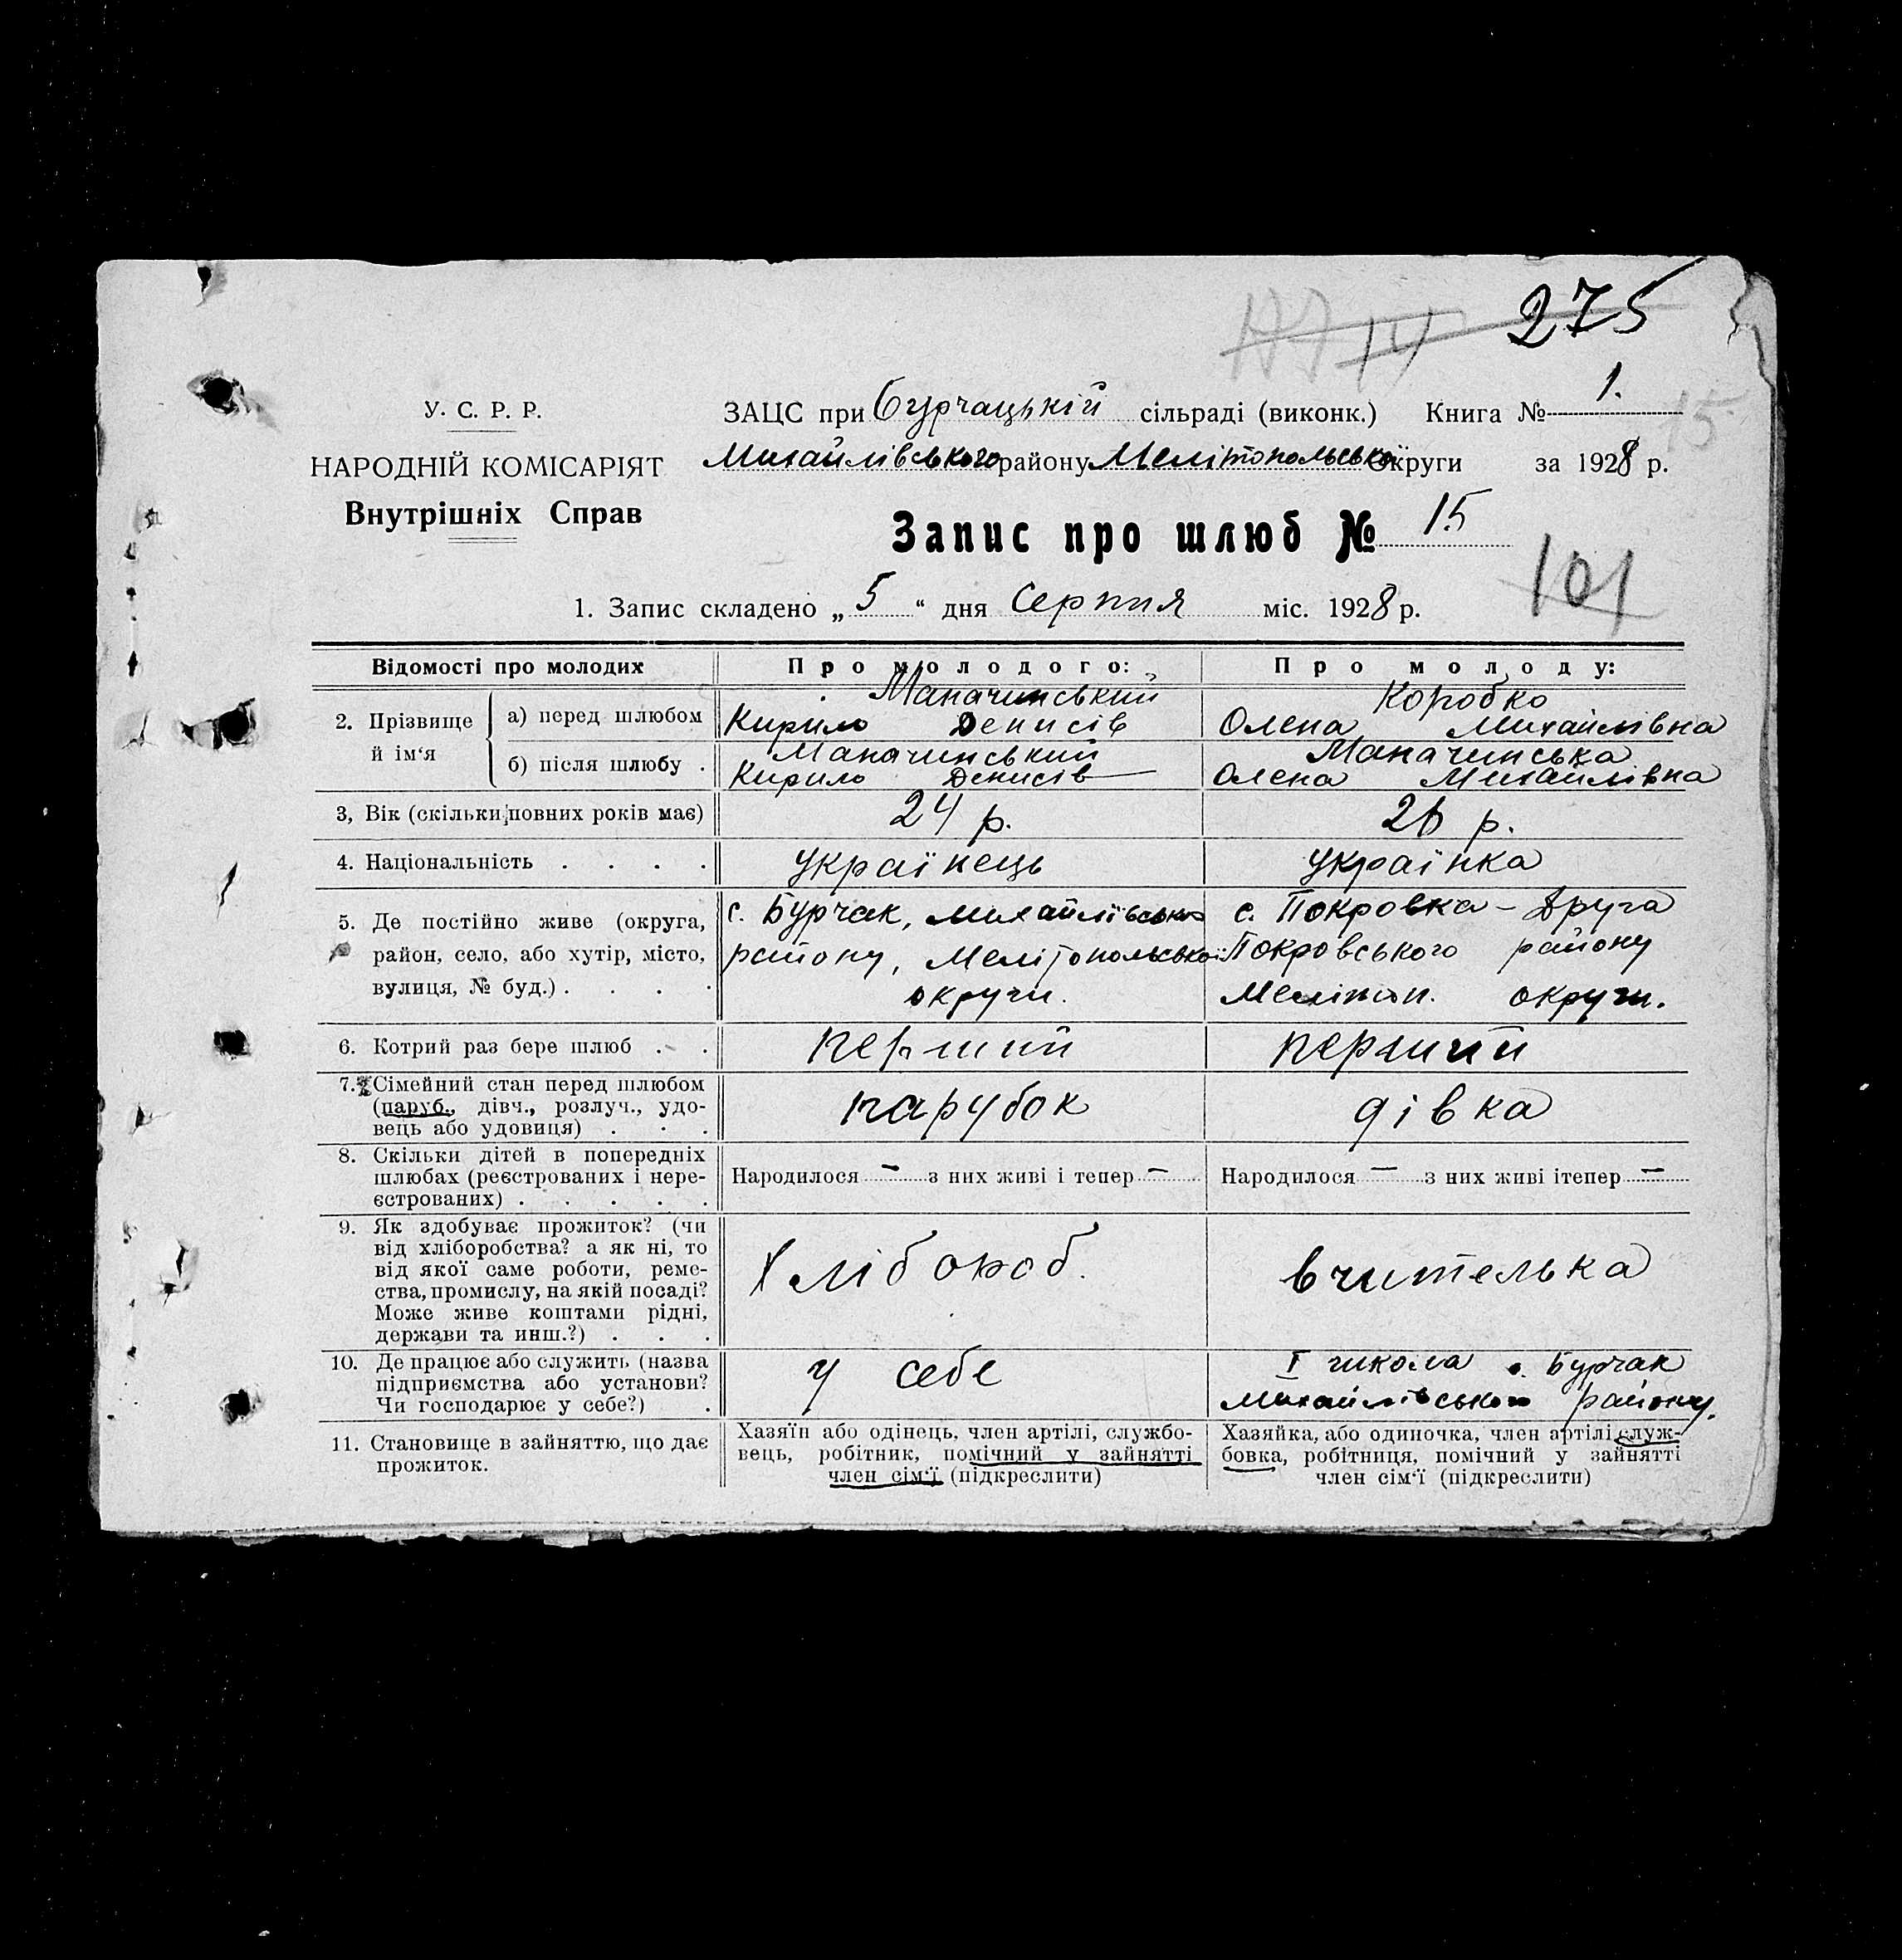 275
У. С. Р. Р.
НАРОДНІЙ КОМІСАРІЯТ
Внутрішніх Справ
ЗАЦС при Бурчацькій сільраді (виконк.) Книга № 1.
15
Михайлівського району Мелітопольської округи за 1928 р.
Запис про шлюб № 15
101
1. Запис складено „ 5 “ дня Серпня міс. 1928 р.
Відомості про молодих Про молодого: Про молоду:
2. Прізвище й ім‘я
а) перед шлюбом Маначинський Коробко
Кирило Денисів Олена Михайлівна
б) після шлюбу . Маначинський Маначинська
Кирило Денисів Олена Михайлівна
3, Вік (скільки повних років має) 24 р. 26 р.
4. Національність . . . . українець українка
5. Де постійно живе (округа, с. Бурчак, Михайлівсько с. Покровка – Друга
район, село, або хутір, місто, району, Мелітопольської Покровського району
вулиця, № буд.) . . . . округи. Меліто п. округи.
6. Котрий раз бере шлюб . . перший перший
7. Сімейний стан перед шлюбом
(паруб., дівч., розлуч., удо- парубок дівка
вець або удовиця) . . .
8. Скільки дітей в попередніх
шлюбах (реєстрованих і нере- Народилося – з них живі і тепер – Народилося – з них живі ітепер –
єстрованих) . . . . .
9. Як здобуває прожиток? (чи
від хліборобства? а як ні, то
від якої саме роботи, реме- Хлібороб. вчителька
ства, промислу, на якій посаді?
Може живе коштами рідні,
держави та инш.?) . . .
10. Де працює або служить (назва у себе І школа с. Бурчак
підприємства або установи? Михайлівського району.
Чи господарює у себе?) .
11. Становище в зайняттю, що дає прожиток.
Хазяїн або одінець, член артілі, службо-
вець, робітник, помічний у зайнятті
член сім‘ї (підкреслити)
Хазяйка, або одиночка, член артілі служ-
бовка, робітниця, помічний у зайнятті
член сім‘ї (підкреслити)